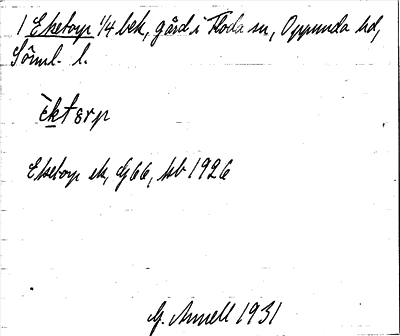 1 Eketorp 1/4 bek, gård i Floda sn, Oppunda hd,
Söml. l.
èktorp
Eketorp ek, Gj 66, kb 1926
G. Annell 1931